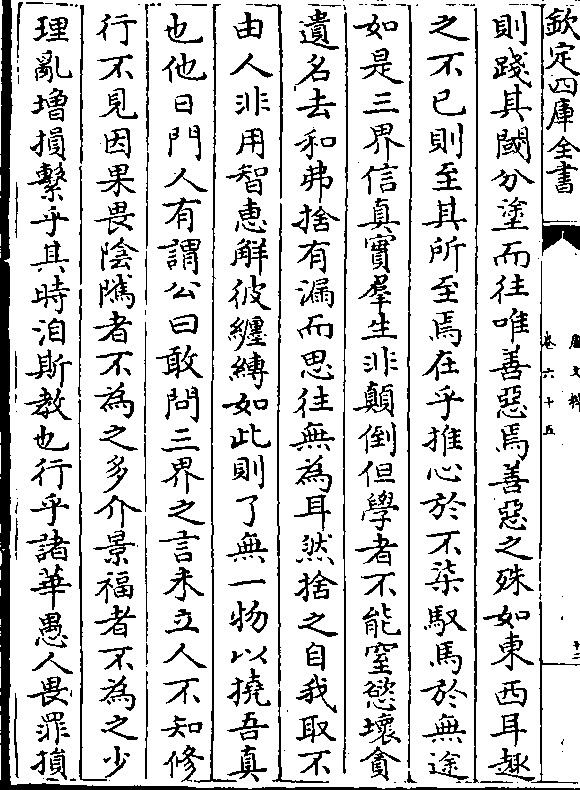 欽定四庫全書
卷六十五
則踐其閾分塗而往唯善惡焉善惡之殊如東西耳趣
之不已則至其所至焉在乎推心於不柒馭馬於無途
如是三界信真實羣生非顛倒但學者不能窒慾壞貪
遺名去和弗捨有漏而思往無為耳然捨之自我取不
由人非用智恵解彼纏縛如此則了無一物以撓吾真
也他日門人有謂公曰敢問三界之言未立人不知修
行不見因果畏陰隲者不為之多介景福者不為之少
理亂增損繫乎其時洎斯教也行乎諸華愚人畏罪損